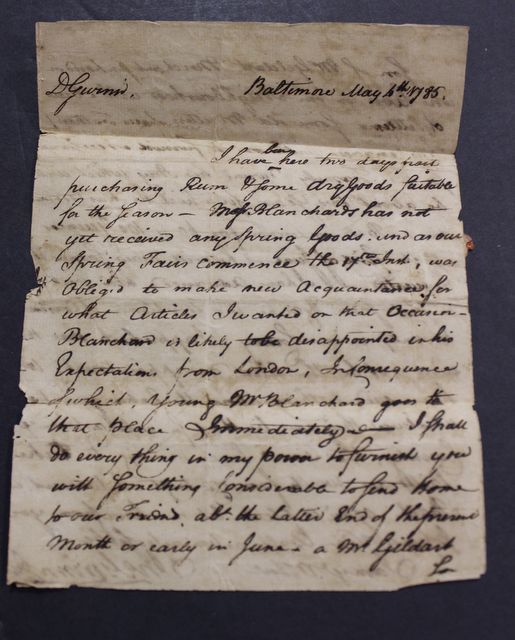 D Gwinn. Baltimore May 4th. 1785.
being
I have here two days past
purchasing Rum & Some dry Goods Suitable
for the Season — Messs. Blanchards has not
yet received any Spring Goods. and as our
Spring Fairs commence the 17th. Inst, was
Obliged to make new Acquaintance for
what Articles I wanted on that Occasion —
Blanchard is likely to be disappointed in his
Expectations from London, In Consequence
of which, Young Mr. Blanchard goes to
that place Immediately — I Shall
do every thing in my power to furnish you
with Something Considerable to Send Home
to our Friend abt. the Latter End of the present
Month or early in June — a Mr. Gildart